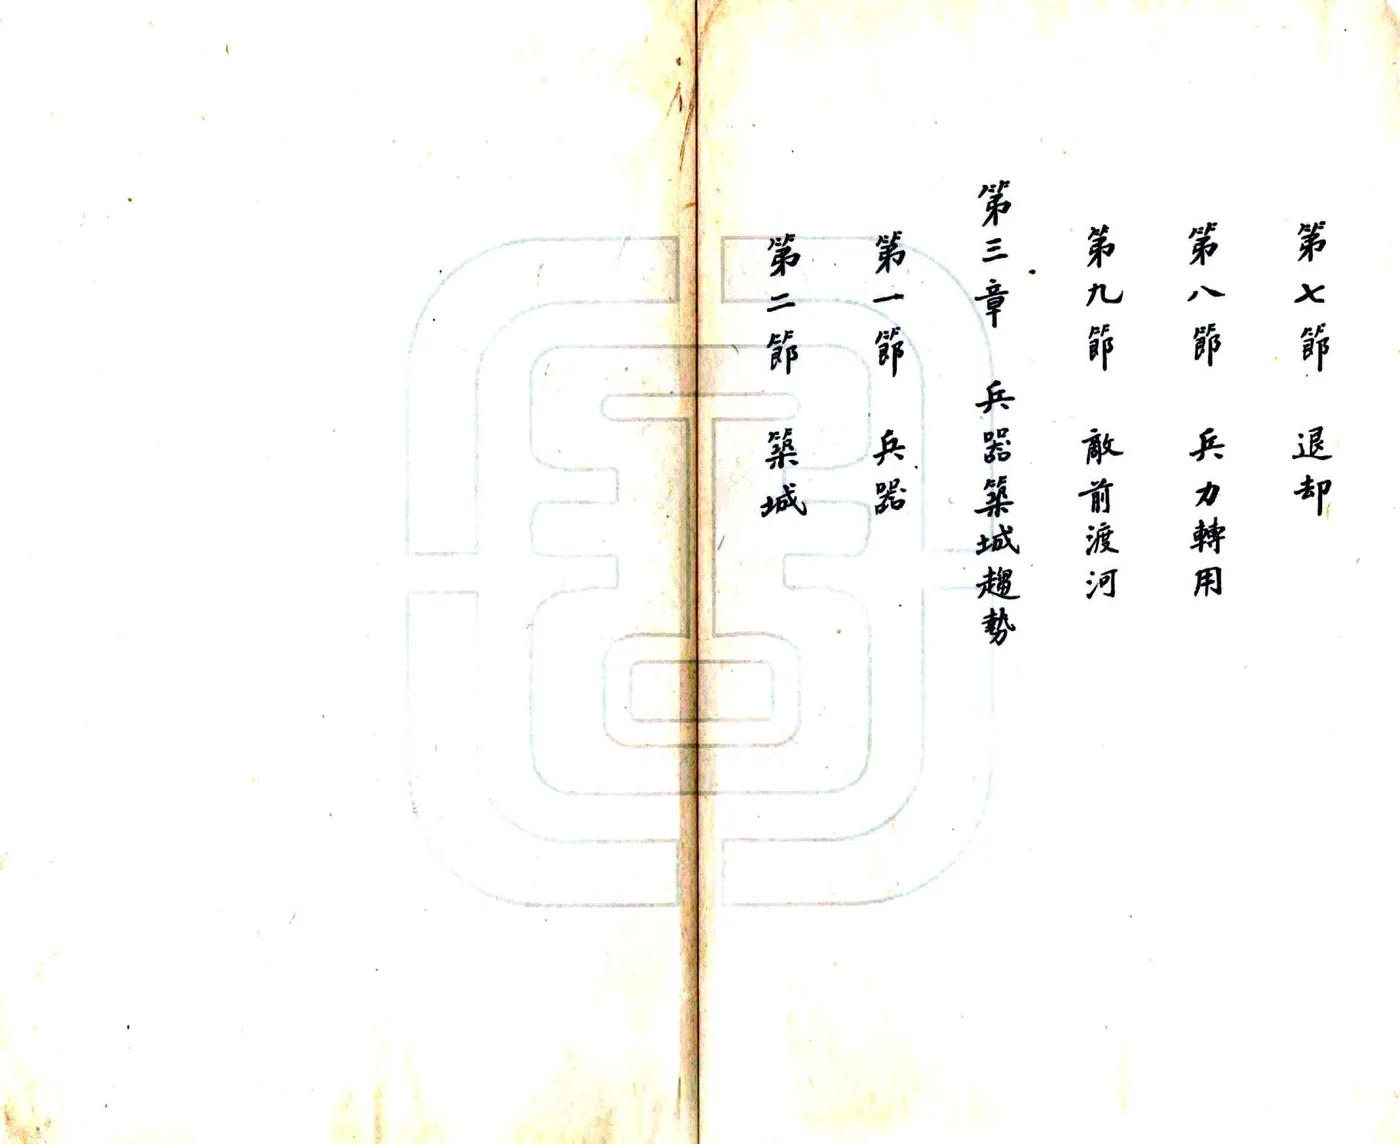 第七節　退却
第八節　兵力轉用
第九節　敵前渡河
第三章　兵器築城趨勢
第一節　兵器
第二節　築城